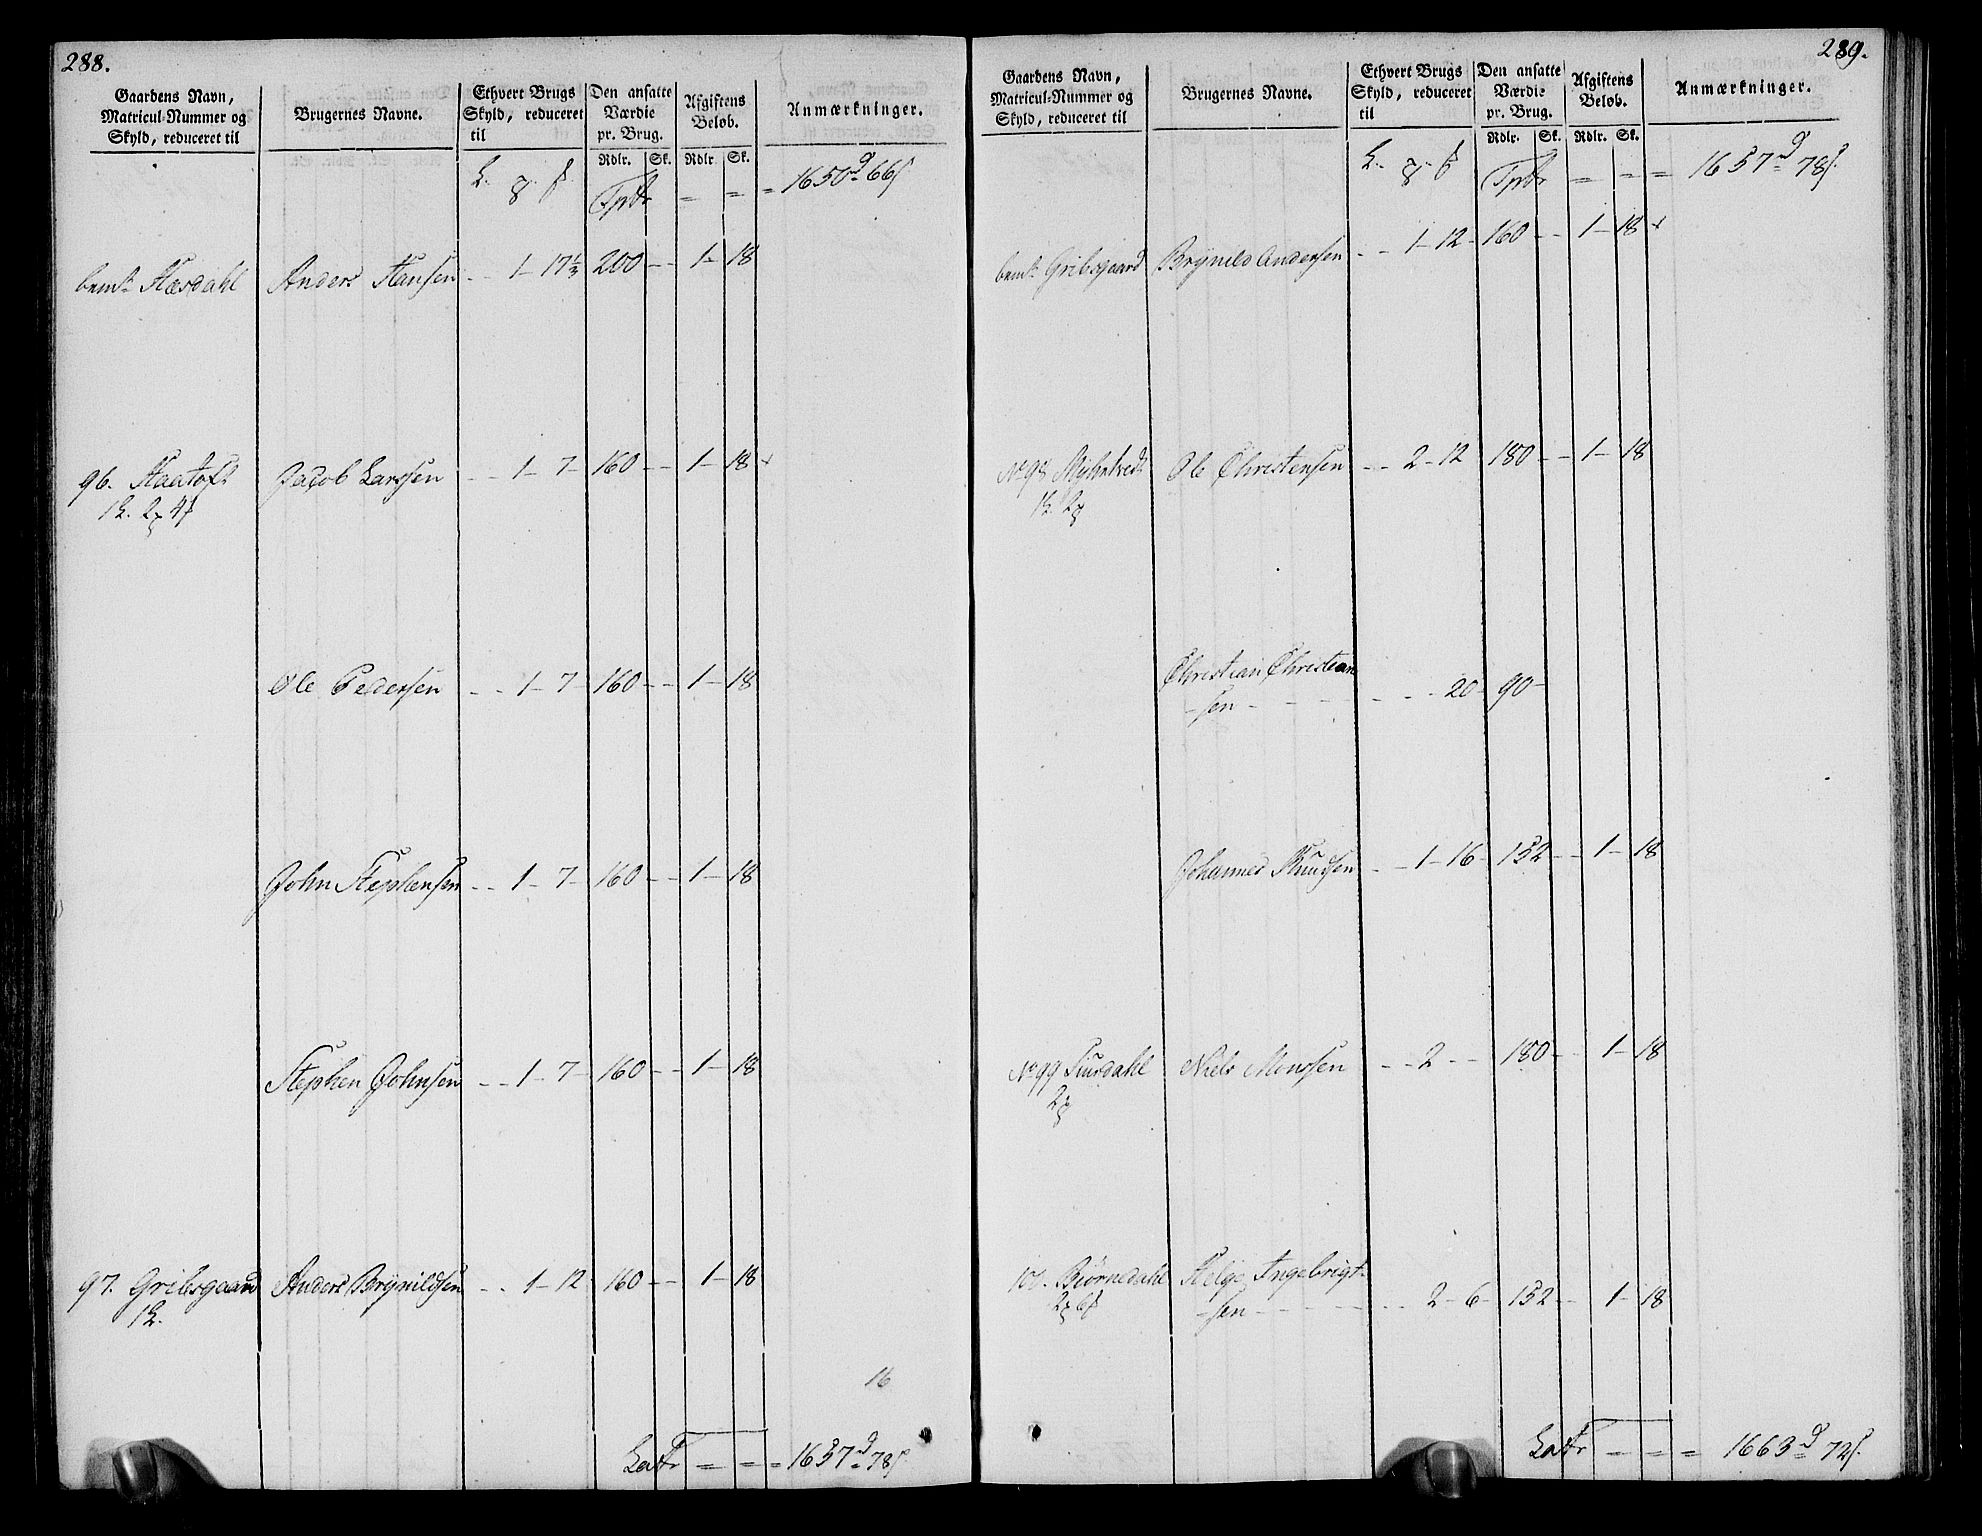 288.
Gaardens Navn, Matricul-Nummer og Skyld, reduceret til
Brugernes Navne.
Ethvert Brugs Skyld, reduceret til
Den ansatte Værdie pr. Brug.
Afgiftens Beløb.
Anmærkninger.
Rdlr. Sk. Rdlr. Sk.
Tptr = = = 1650 66
Hæsdahl Anders Hansen - 1 - 17⅓ 200 - - 1 - 18
96. Haatoft Jacob Larssen - - 1 - 7 - 160 - - 1 - 18
Ole Pedersen - - 1 - 7 - 160 - - 1 - 18
John Stephensen - - 1 - 7 - 160 - - 1 - 18
Stephen Johnsen - - 1 - 7 - 160 - - 1 - 18
97. Gribsgaard Anders Brynildsen - - 1 - 12 160 - - 1 - 18
16
Latr = = = 1657 78
289.
Gaardens Navn, Matricul-Nummer og Skyld, reduceret til
Brugernes Navne.
Ethvert Brugs Skyld, reduceret til
Den ansatte Værdie pr. Brug.
Afgiftens Beløb.
Anmærkninger.
Rdlr. Sk. Rdlr. Sk.
Tptr = = = 1657 78
Gribsgaard Brynild Andersen - - 1 - 12 - 160 - - 1 - 18
No 98 Ole Christensen - - 2 - 12 180 - - 1 - 18
Christian Christian
-sen - - - - - - 20 - 90 -
Johannes Knudsen - - 1 - 16 - 152 - - 1 - 18
No 99 Niels Monssen - - 2 - - 180 - - 1 - 18
100. Biørnedahl Helge Ingebrigt-
-sen - - - - - - 2 - 6 - 152 - - 1 - 18
Latr = = = 1663 72